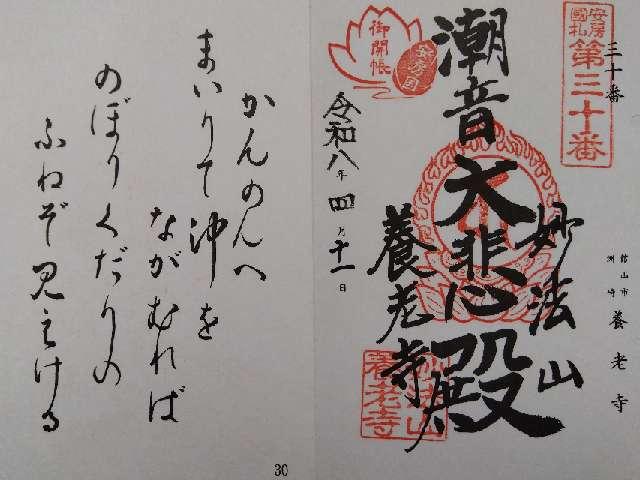 安房
國札
第三十番
三十番
館山市
洲崎
養老寺
妙法山
潮音大悲殿
養老寺
御開帳
安房国
令和八年四月十一日
妙法山
養老寺
かんのんへ
まいりて沖を
ながむれば
のぼりくだりの
ふねぞ見えける
30